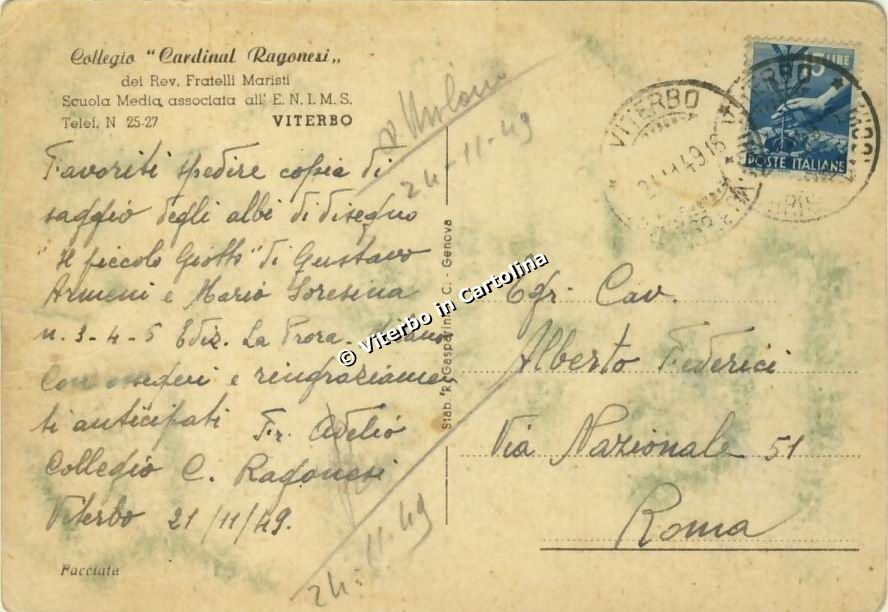 Collegio "Cardinal Ragonesi„
dei Rev. Fratelli Maristi
Scuola Media associata all' E.N.I.M.S.
Telef. N 25-27 VITERBO
24-11-49
Favoriti spedire copia di
saggio degli albi di disegno
"Il piccolo Giotto" di Gustavo
Armeni e Mario Soresina
n. 3-4-5 Ediz. La Prora -
Con ossequi e ringraziamen
ti anticipati Fr. Adelio
Collegio C. Ragonesi
Viterbo 21/11/49.
24-11-49
Facciata
Stab. R. Gasparini C. - Genova
© Viterbo in Cartolina
VITERBO
VITERBO
15 LIRE
POSTE ITALIANE
Egr. Cav.
Alberto Federici
Via Nazionale 51
Roma